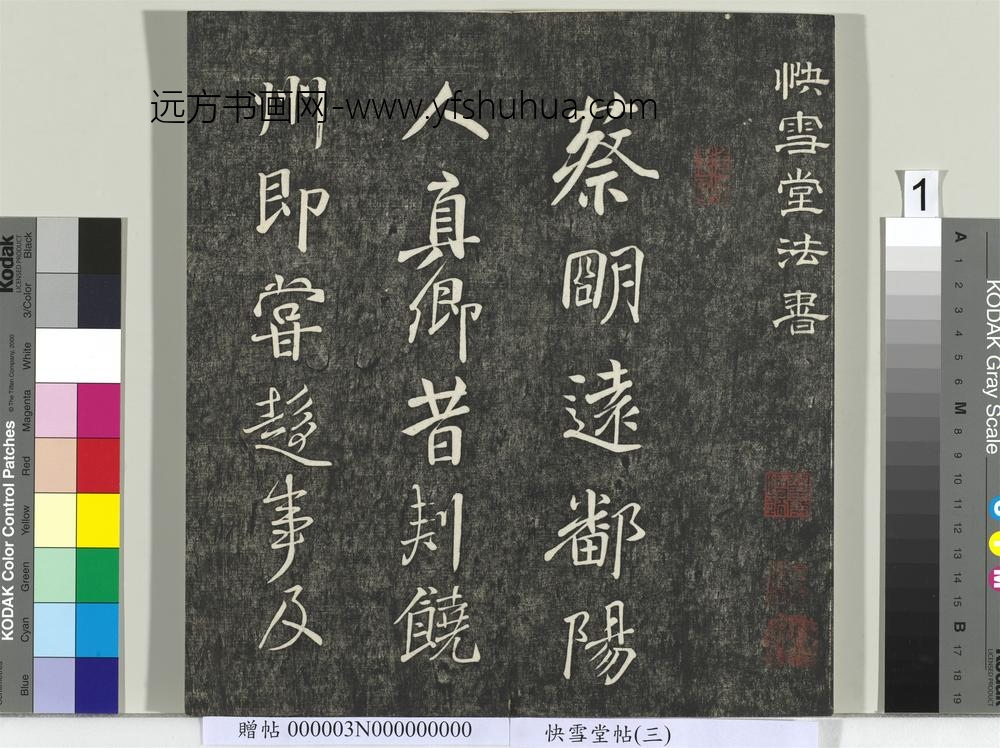 快雪堂法書
蔡明遠鄱陽
人真卿昔刾饒
州即嘗趍事及
远方书画网-www.yfshuhua.com
1
贈帖 000003N000000000
快雪堂帖(三)
Kodak
LICENSED PRODUCT
Black
3/Color
White
Magenta
Red
Yellow
Green
Cyan
Blue
KODAK Color Control Patches
© The Tiffen Company, 2000
KODAK Gray Scale
A 1 2 3 4 5 6 M 8 9 10 11 12 13 14 15 B 17 18 19
C
Y
M
Kodak
LICENSED PRODUCT